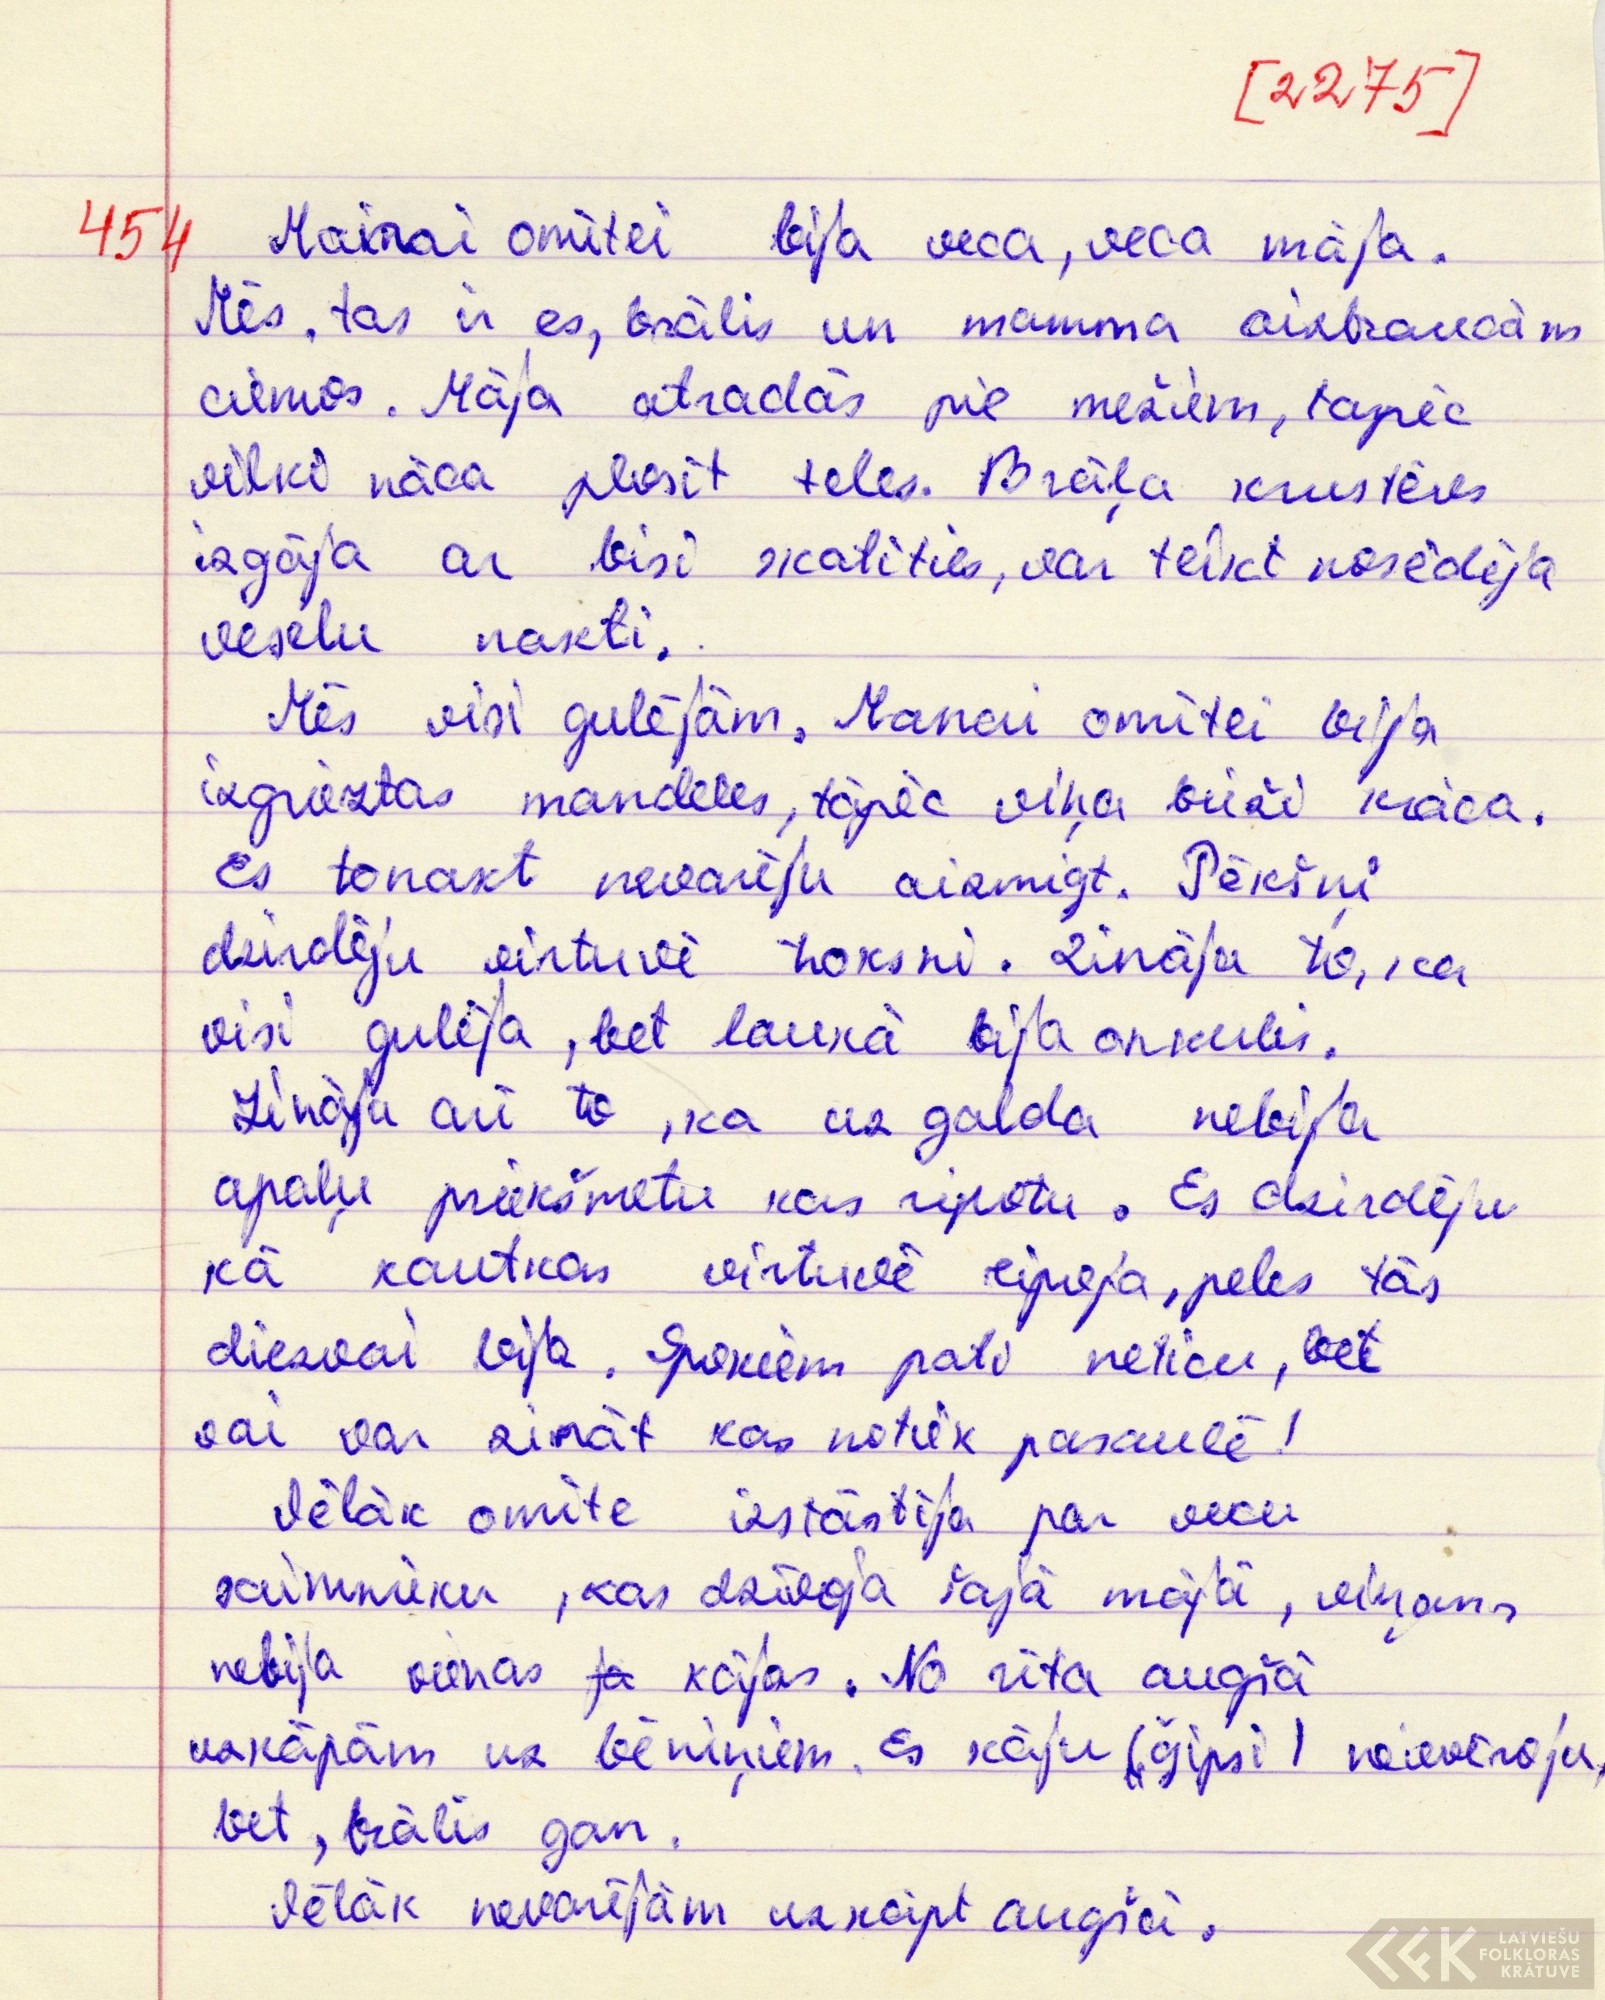 [2275]
454 Mainai omītei bija veca, veca māja.
Mēs, tas ir es, brālis un mamma aizbraucām
ciemos. Māja atradās pie mežiem, tapēc
vilki nāca plosīt teles. Brāļa krustēvs
izgāja ar bisi skatīties, var teikt nosēdēja
veselu nakti.
Mēs visi gulējām. Manai omītei bija
izgrieztas mandeles, tāpēc viņa bieži krāca.
Es tonakt nevarēju aizmigt. Pēkšņi
dzirdēju virtuvē troksni. Zināju to, ka
visi gulēja, bet laukā bija onkulis.
Zināju arī to, ka uz galda nebija
apaļu priekšmetu kas ripotu. Es dzirdēju
kā kautkas virtuvē ripoja, peles tās
diezvai bija. Spokiem pati neticu, bet
vai var zināt kas notiek pasaulē!
Vēlāk omīte izstāstīja par vecu
saimnieku, kas dzīvoja šajā mājā, viņam
nebija vienas ja kājas. No rīta augšā
uzkāpām uz bēniņiem. Es kāju (ģipsi) neievēroju,
bet, brālis gan.
Vēlāk nevarējām uzkāpt augšā.
LATVIEŠU
FOLKLORAS
KRĀTUVE